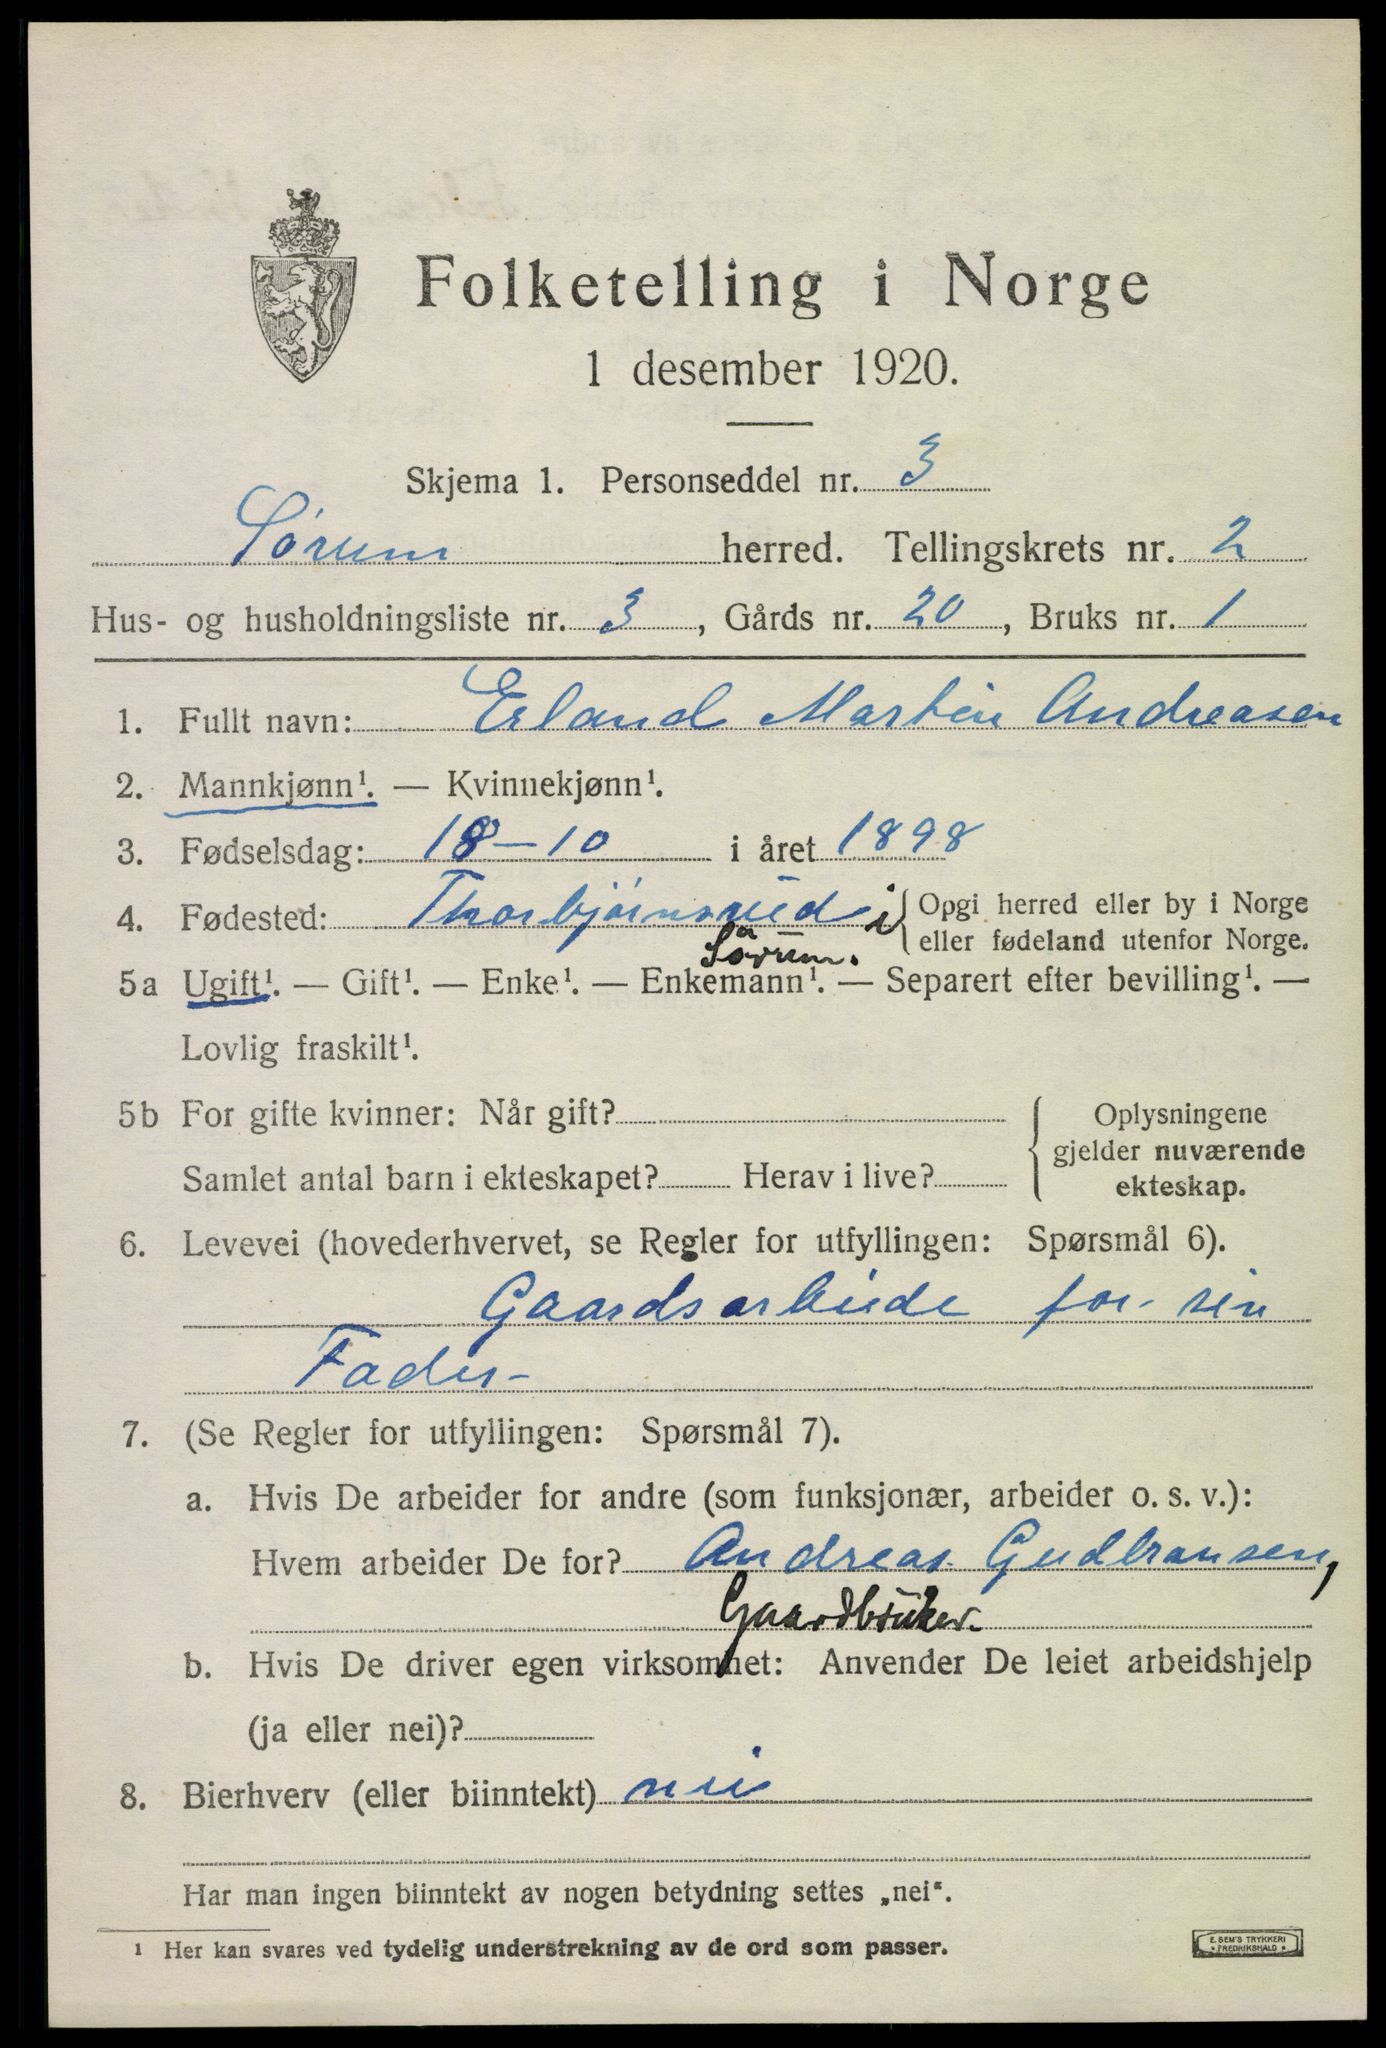 Folketelling i Norge
1 desember 1920.
Skjema 1. Personseddel nr. 3
Sørum herred. Tellingskrets nr. 2
Hus- og husholdningsliste nr. 3, Gårds nr. 20, Bruks nr. 1
1. Fullt navn: Erland Martin Andreasen
2. Mannkjønn¹. — Kvinnekjønn¹.
3. Fødselsdag: 18-10 i året 1898
4. Fødested: Thorbjørnsrud i { Opgi herred eller by i Norge
eller fødeland utenfor Norge.
Sørum.
5a Ugift¹. — Gift¹. — Enke¹. — Enkemann¹. — Separert efter bevilling¹. —
Lovlig fraskilt¹.
5b For gifte kvinner: Når gift?
Samlet antal barn i ekteskapet? Herav i live?
{ Oplysningene
gjelder nuværende
ekteskap.
6. Levevei (hovederhvervet, se Regler for utfyllingen: Spørsmål 6).
Gaardsarbeide for sin
Fader
7. (Se Regler for utfyllingen: Spørsmål 7).
a. Hvis De arbeider for andre (som funksjonær, arbeider o. s. v.):
Hvem arbeider De for? Andreas Gudbransen,
Gaardbruker.
b. Hvis De driver egen virksomhet: Anvender De leiet arbeidshjelp
(ja eller nei)?
8. Bierhverv (eller biinntekt) nei
Har man ingen biinntekt av nogen betydning settes „nei“.
¹ Her kan svares ved tydelig understrekning av de ord som passer.
E. SEM'S TRYKKERI
* FREDRIKSHALD *